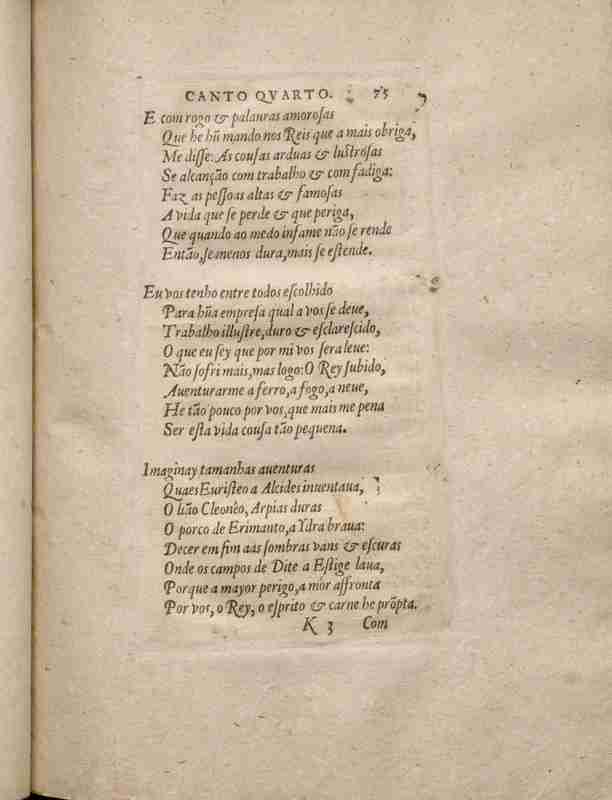 CANTO QVARTO. 75
E com rogo & palauras amoroſas
Que he hũ mando nos Reis que a mais obriga,
Me diſſe: As couſas arduas & luſtroſas
Se alcanção com trabalho & com fadiga:
Faz as peſſoas altas & famoſas
A vida que ſe perde & que periga,
Que quando ao medo infame não ſe rende
Então, ſe menos dura, mais ſe eſtende.
Eu vos tenho entre todos eſcolhido
Para hũa empreſa qual a vos ſe deue,
Trabalho illuſtre, duro & eſclareſcido,
O que eu ſey que por mi vos ſera leue:
Não ſofri mais, mas logo: O Rey ſubido,
Auenturarme a ferro, a fogo, a neue,
He tão pouco por vos, que mais me pena
Ser eſta vida couſa tão pequena.
Imaginay tamanhas auenturas
Quaes Euriſteo a Alcides inuentaua,
O lião Cleonêo, Arpias duras
O porco de Erimanto, a Ydra braua:
Decer em fim aas ſombras vans & eſcuras
Onde os campos de Dite a Eſtige laua,
Porque a mayor perigo, a mòr affronta
Por vos, o Rey, o eſprito & carne he prõpta.
K 3 Com